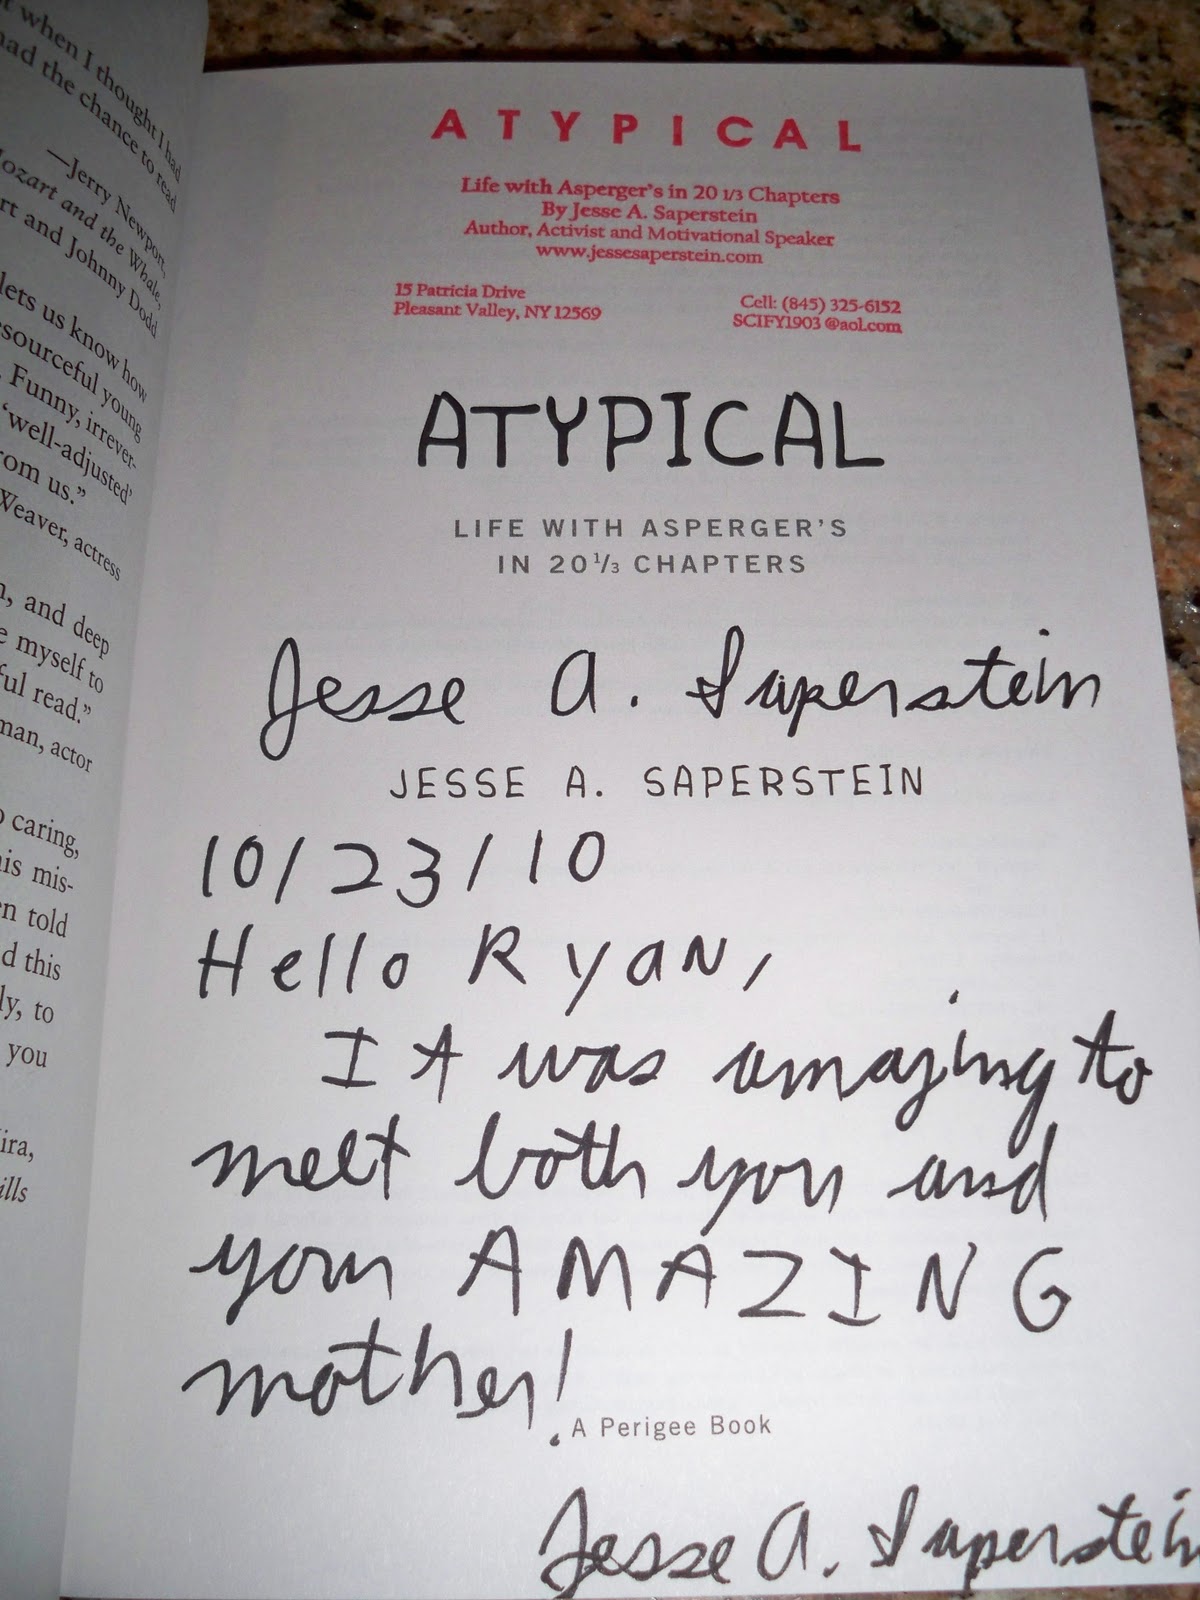 when I thought I had
had the chance to read
—Jerry Newport,
Mozart and the Whale,
rt and Johnny Dodd
lets us know how
esourceful young
. Funny, irrever-
'well-adjusted'
rom us."
Weaver, actress
n, and deep
e myself to
ful read."
man, actor
o caring,
his mis-
en told
d this
ly, to
you
ira,
ills
ATYPICAL
Life with Asperger's in 20 1/3 Chapters
By Jesse A. Saperstein
Author, Activist and Motivational Speaker
www.jessesaperstein.com
15 Patricia Drive
Pleasant Valley, NY 12569
Cell: (845) 325-6152
SCIFY1903 @aol.com
ATYPICAL
LIFE WITH ASPERGER'S
IN 20 1/3 CHAPTERS
Jesse A. Saperstein
JESSE A. SAPERSTEIN
10/23/10
Hello Ryan,
It was amazing to
meet both you and
your AMAZING
mother!
A Perigee Book
Jesse A. Saperstein